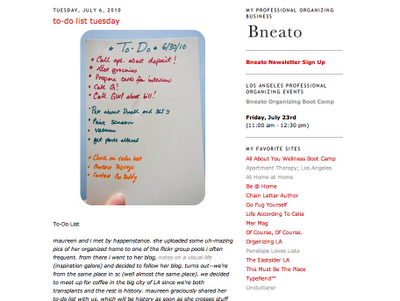 TUESDAY, JULY 6, 2010
to-do list tuesday
* To-Do * 6/30/10
• Call apt about deposit!
• Get groceries
• Prepare cards for interview
• Call
• Call Girl about bill!
• Paint
• Vacuum
• get pants altered
• Check on
• Contact
• Contact
To-Do List
maureen and i met by happenstance. she uploaded some uh-mazing
pics of her organized home to one of the flickr group pools i often
frequent. from there i went to her blog, notes on a visual life
(inspiration galore) and decided to follow her blog. turns out--we're
from the same place in sc (well almost the same place). we decided
to meet up for coffee in the big city of LA since we're both
transplants and the rest is history. maureen graciously shared her
to-do list with us, which will be history as soon as she crosses stuff
MY PROFESSIONAL ORGANIZING
BUSINESS
Bneato
Bneato Newsletter Sign Up
LOS ANGELES PROFESSIONAL
ORGANIZING EVENTS
Bneato Organizing Boot Camp
Friday, July 23rd
(11:00 am - 12:30 pm)
MY FAVORITE SITES
All About You Wellness Boot Camp
Apartment Therapy; Los Angeles
At Home at Home
Be @ Home
Chain Letter Author
Go Fug Yourself
Life According To Celia
Mer Mag
Of Course, Of Course.
Organizing LA
Penelope Loves Lists
The Eastsider LA
This Must Be The Place
Typefiend™
Unclutterer